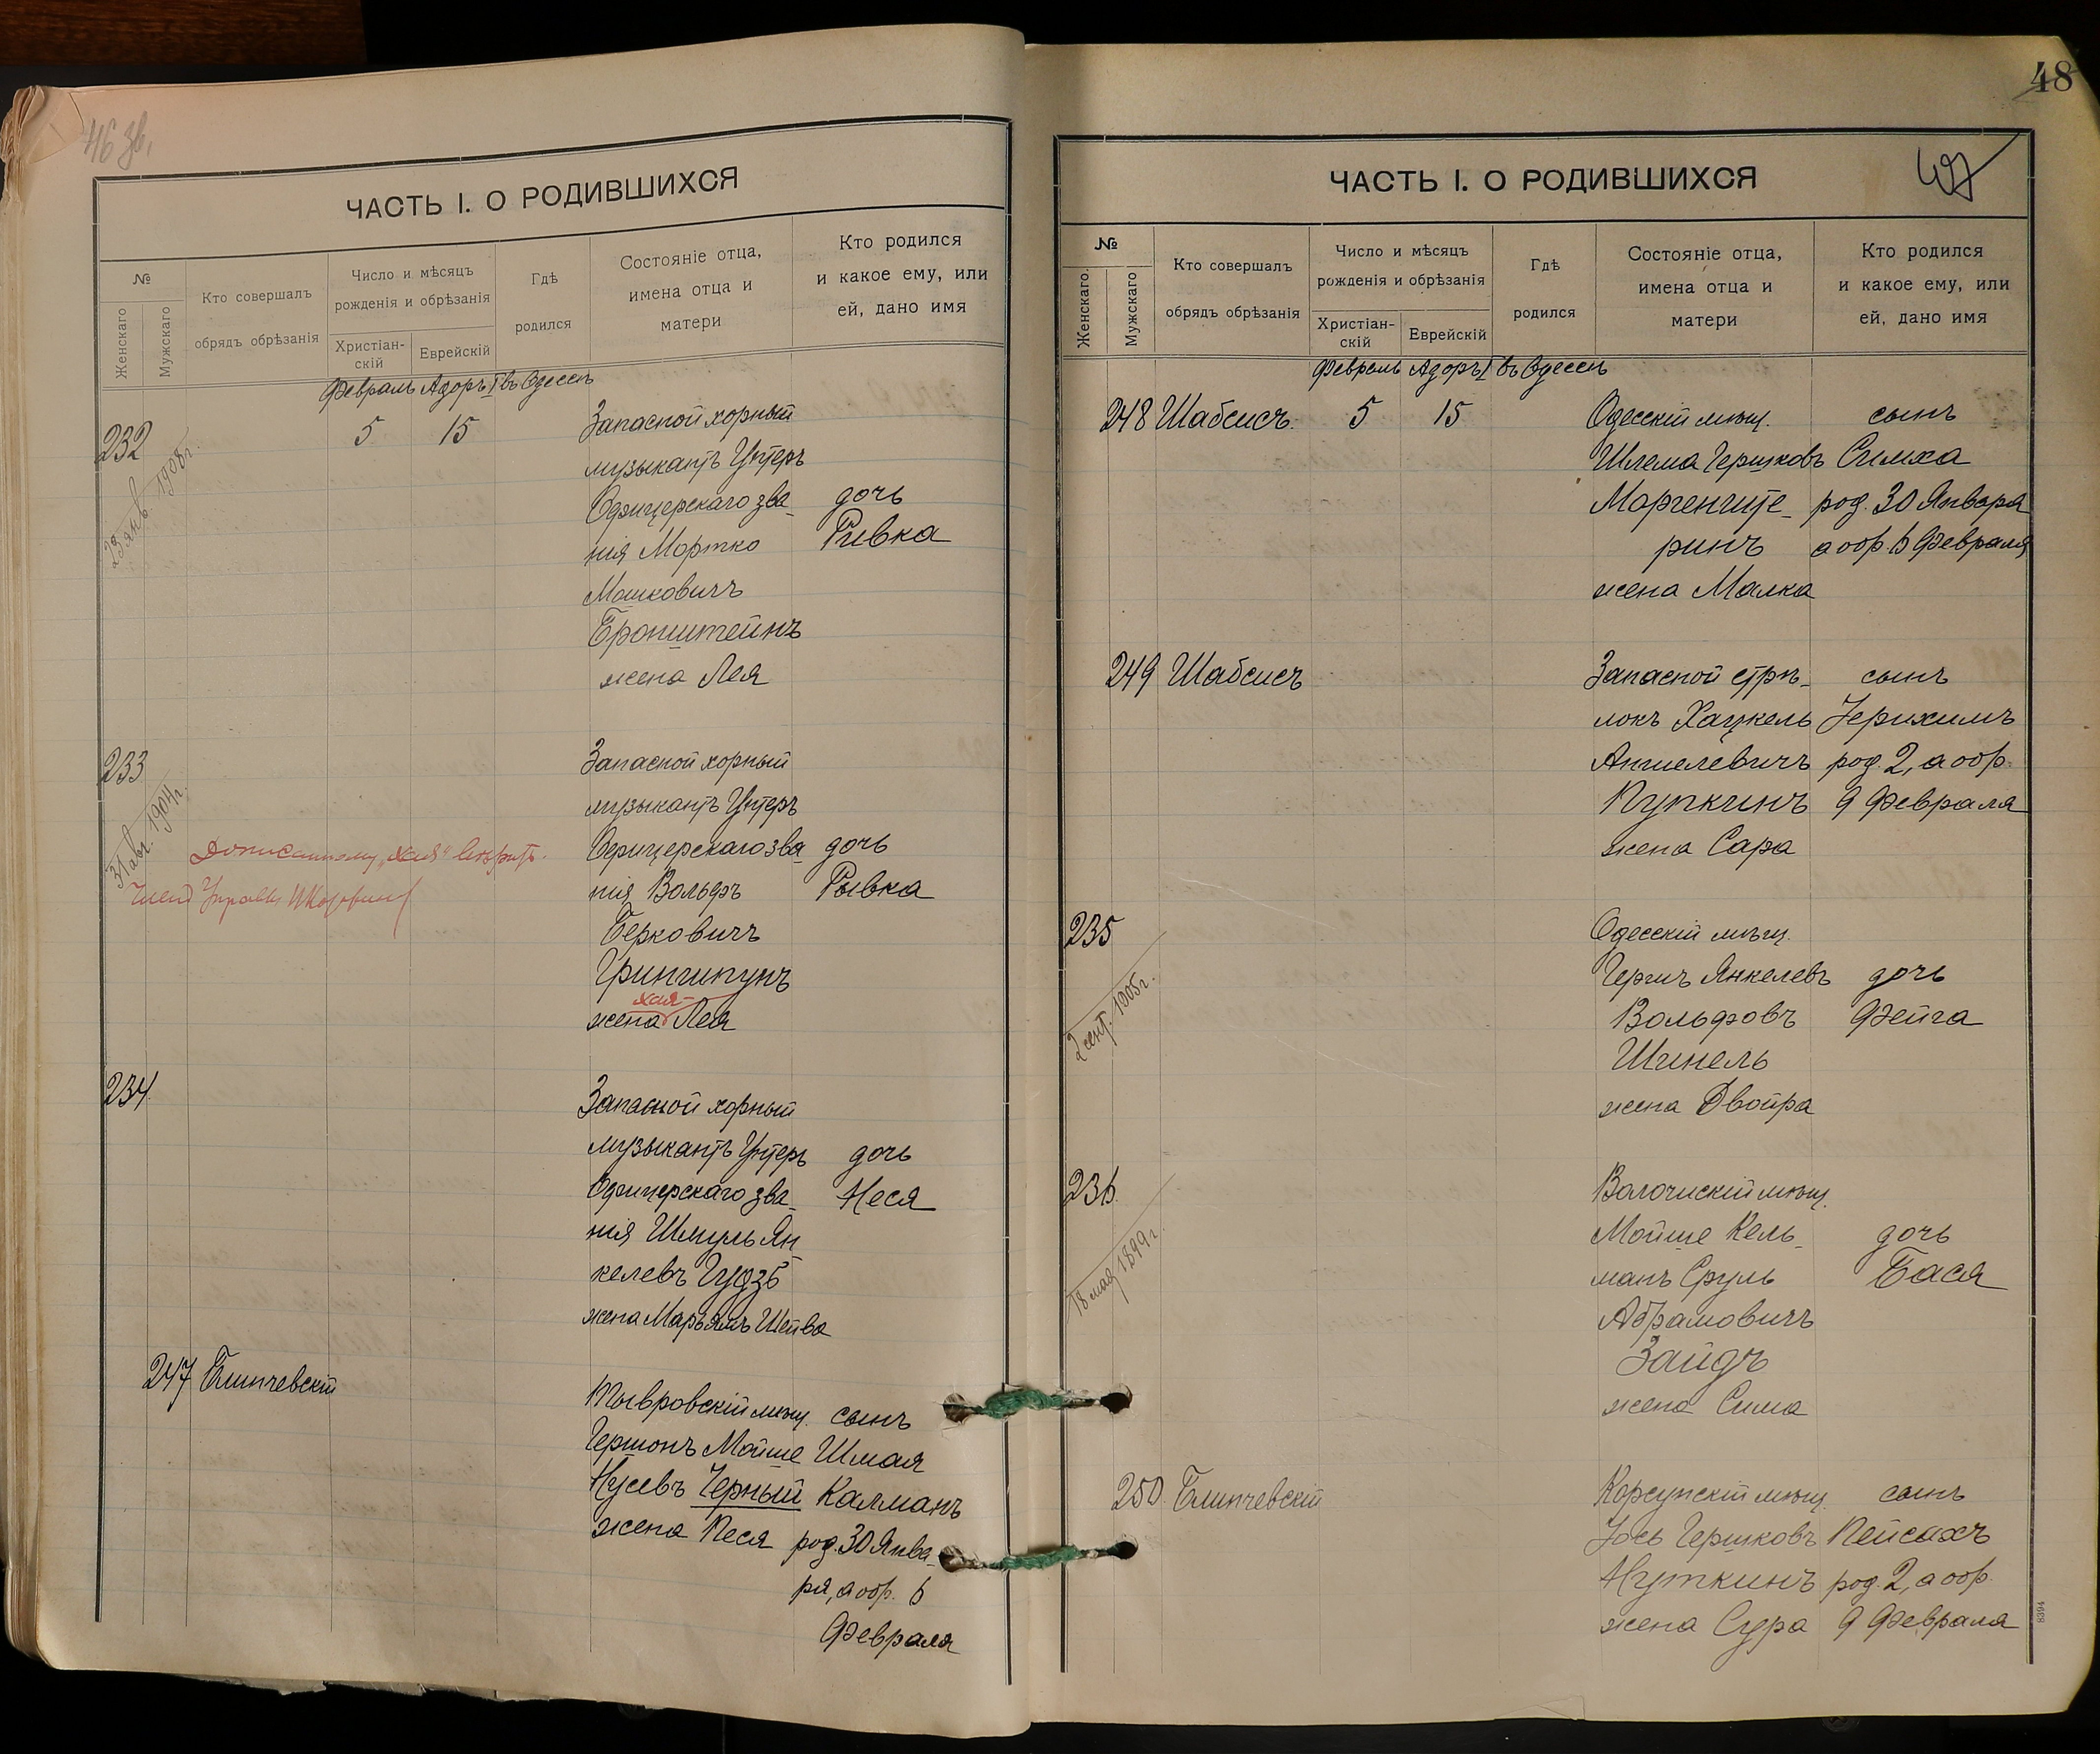 46 зв.
ЧАСТЬ I. О РОДИВШИХСЯ
№
Женскаго
Мужскаго
Кто совершалъ
обрядъ обрѣзанія
Число и мѣсяцъ
рожденія и обрѣзанія
Христіан-
скій
Еврейскій
Гдѣ
родился
Состояніе отца,
имена отца и
матери
Кто родился
и какое ему, или
ей, дано имя
Февраль Адоръ I въ Одессѣ
232 5 15 Запасной хорный
музыкантъ Унтеръ
Офицерскаго зва- дочь
нія Мортко Ривка
Мошковичъ
Бронштейнъ
жена Лея
23 янв. 1908 г.
233 Запасной хорный
музыкантъ Унтеръ
Офицерскаго зва- дочь
нія Вольфъ Рывка
Берковичъ
Грингипунъ
Хая-
жена Лея
31 авг. 1904 г.
Дописанному „Хая" вѣрить.
Членъ Управы
234 Запасной хорный
музыкантъ Унтеръ дочь
Офицерскаго зва- Неся
нія Шмуль Ян-
келевъ Гудзъ
жена Марьямъ Шейва
247 Блинчевскій Тывровскій мѣщ. сынъ
Гершонъ Мойше Шмая
Нусевъ Черный Калманъ
жена Песя род. 30 Янва-
ря, а обр. 6
Февраля
48
47
ЧАСТЬ I. О РОДИВШИХСЯ
№
Женскаго.
Мужскаго
Кто совершалъ
обрядъ обрѣзанія
Число и мѣсяцъ
рожденія и обрѣзанія
Христіан-
скій
Еврейскій
Гдѣ
родился
Состояніе отца,
имена отца и
матери
Кто родился
и какое ему, или
ей, дано имя
Февраль Адоръ I въ Одессѣ
248 Шабсисъ. 5 15 Одесскій мѣщ. сынъ
Шлема Гершковъ Симха
Моргенште- род. 30 Января
ринъ а обр. 6 Февраля
жена Малка
249 Шабсисъ Запасной стрѣ- сынъ
локъ Хацкель Іерихимъ
Аншелевичъ род. 2, а обр.
Пупкинъ 9 Февраля
жена Сара
235 Одесскій мѣщ.
Гершъ Янкелевъ дочь
Вольфовъ Фейга
Шинель
жена Двойра
2 сент. 1905 г.
236. Волочискій мѣщ.
Мойше Кель- дочь
манъ Сруль Бася
Абрамовичъ
Зайдъ
жена Сима
18 мая 1899 г.
250 Блинчевскій Корсунскій мѣщ. сынъ
Іось Гершковъ Пейсахъ
Нуткинъ род. 2, а обр.
жена Сура 9 Февраля
8394